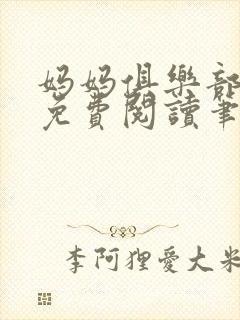 妈妈俱樂部
免費閱讀筆
李阿狸愛大米